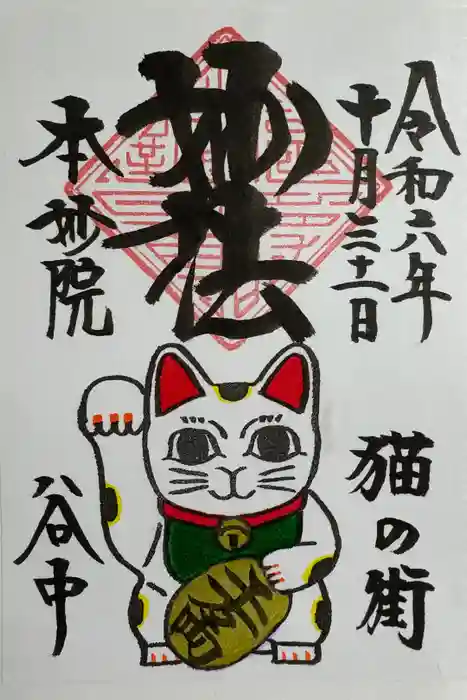 令和六年
十月三十一日
妙法
本妙院
猫の街
谷中